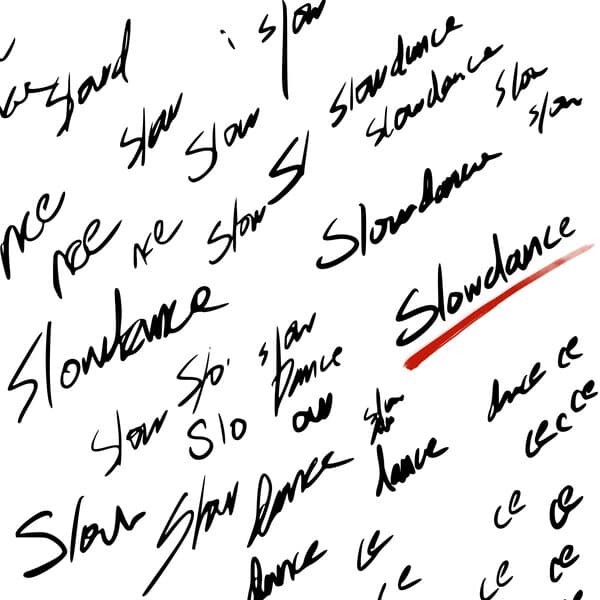 slow
Slowd
Slowdance
slowdance
slow
slow
slow
Slow
Sl
slow
nce
nce
nce
Slowdance
Slowdance
Slowdance
slow
Dance
Slo
slow
Slo
ow
slow
dance
dance
ce
ce
ce
ce
Slow
Slow
Dance
dance
ce
ce
ce
ce
ce
ce